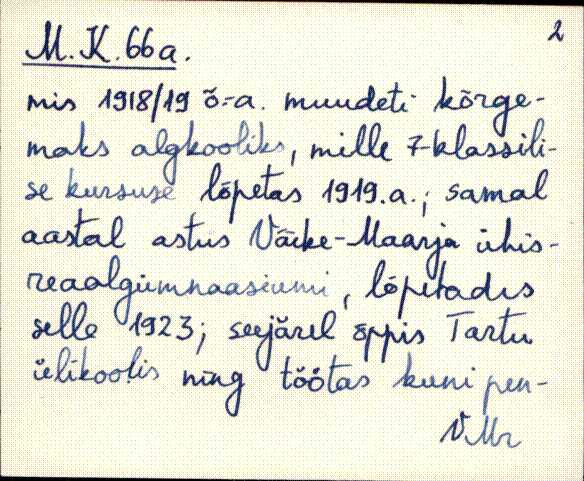 2
M.K. 66a.
mis 1918/19 õ.-a. muudeti kõrge-
maks algkooliks, mille 7-klassili-
se kursuse lõpetas 1919.a.; samal
aastal astus Väike-Maarja ühis-
reaalgümnaasiumi, lõpetades
selle 1923; seejärel õppis Tartu
ülikoolis ning töötas kuni pen-
VMr